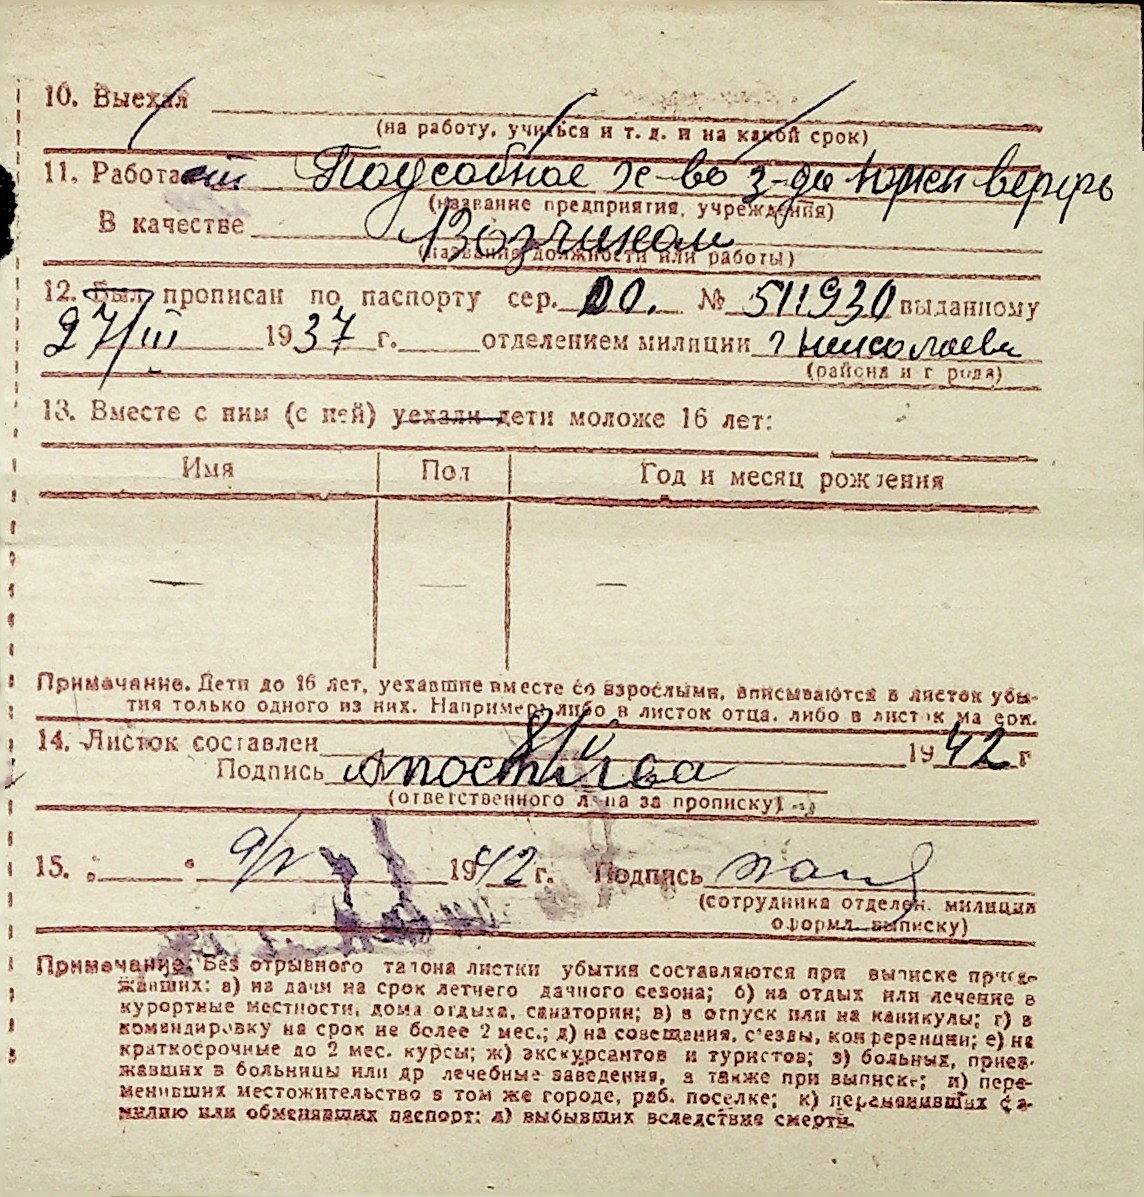 10. Выехал
(на работу, учиться и т. д. и на какой срок)
11. Работает Подсобное х-во з-да верфь
(название предприятия, учреждения)
В качестве Возчиком
(название должности или работы)
12. Был прописан по паспорту сер. № 511930 выданному
27/III 1937 г. отделением милиции г Николаева
(района и города)
13. Вместе с ним (с ней) уехали дети моложе 16 лет:
Имя Пол Год и месяц рождения
— — —
Примечание. Дети до 16 лет, уехавшие вместе со взрослыми, вписываются в листок убы-
тия только одного из них. Например: либо в листок отца, либо в листок матери.
14. Листок составлен 1942 г
Подпись
(ответственного лица за прописку)
15. 1942 г. Подпись
(сотрудника отделен. милиции
оформл. выписку)
Примечание. Без отрывного талона листки убытия составляются при выписке приез-
жавших: а) на дачи на срок летнего дачного сезона; б) на отдых или лечение в
курортные местности, дома отдыха, санатории; в) в отпуск или на каникулы; г) в
командировку на срок не более 2 мес.; д) на совещания, съезды, конференции; е) на
краткосрочные до 2 мес. курсы; ж) экскурсантов и туристов; з) больных, приез-
жавших в больницы или др лечебные заведения, а также при выписке; и) пере-
менивших местожительство в том же городе, раб. поселке; к) переменивших фа-
милию или обменявших паспорт; л) выбывших вследствие смерти.